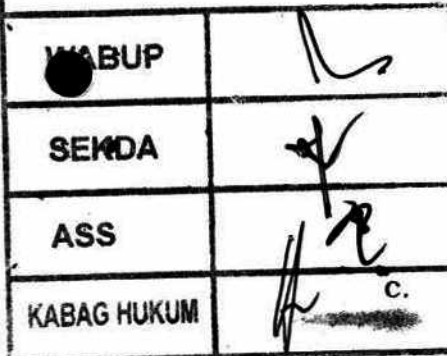 WABUP
SEKDA
ASS
KABAG HUKUM
c.